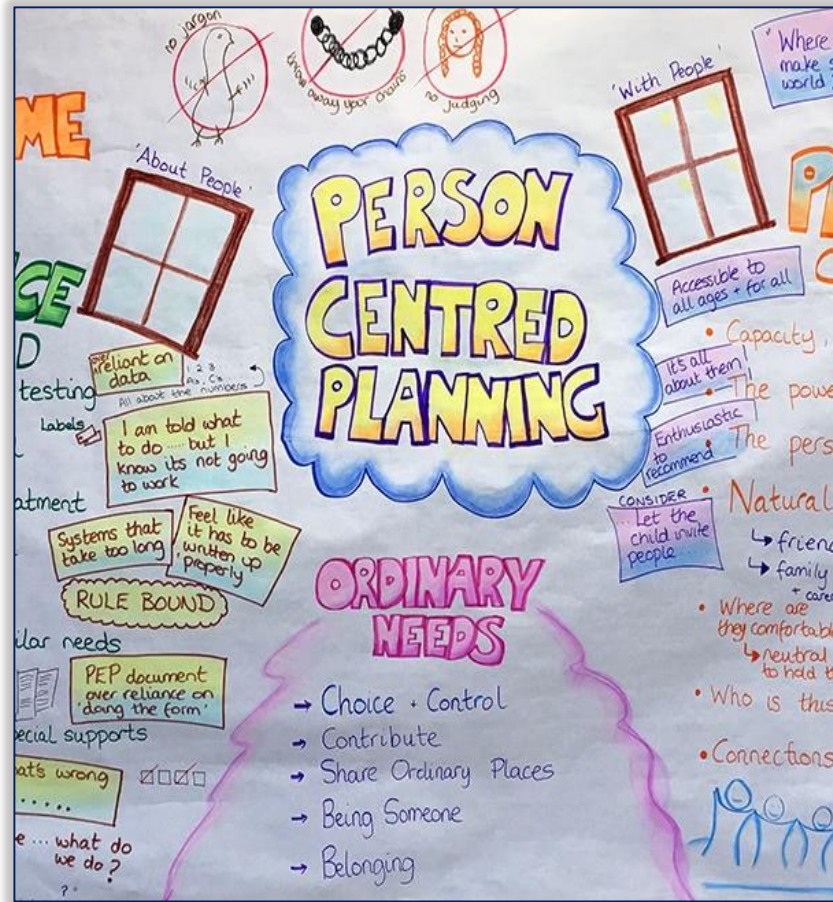 no jargon
throw away your chains
no judging
'With People'
"Where
make
world
ME
'About People'
PERSON
CENTRED
PLANNING
Accessible to
all ages + for all
It's all
about them!
Enthusiastic
to
recommend
CONSIDER
... Let the
child invite
people ...
• Capacity
• The
• The
• Natural
↳
↳ family
+
• Where are
they
↳ neutral
to hold
• Who is this
• Connections
D
testing
over
reliant on
data
1 2 3
A's, C's...
All about the numbers
Labels
I am told what
to do ..... but I
know its not going
to work
Systems that
take too long
Feel like
it has to be
written up
properly
RULE BOUND
needs
PEP document
over reliance on
'doing the form'
supports
wrong
.....
... what do
we do?
?
ORDINARY
NEEDS
→ Choice + Control
→ Contribute
→ Share Ordinary Places
→ Being Someone
→ Belonging